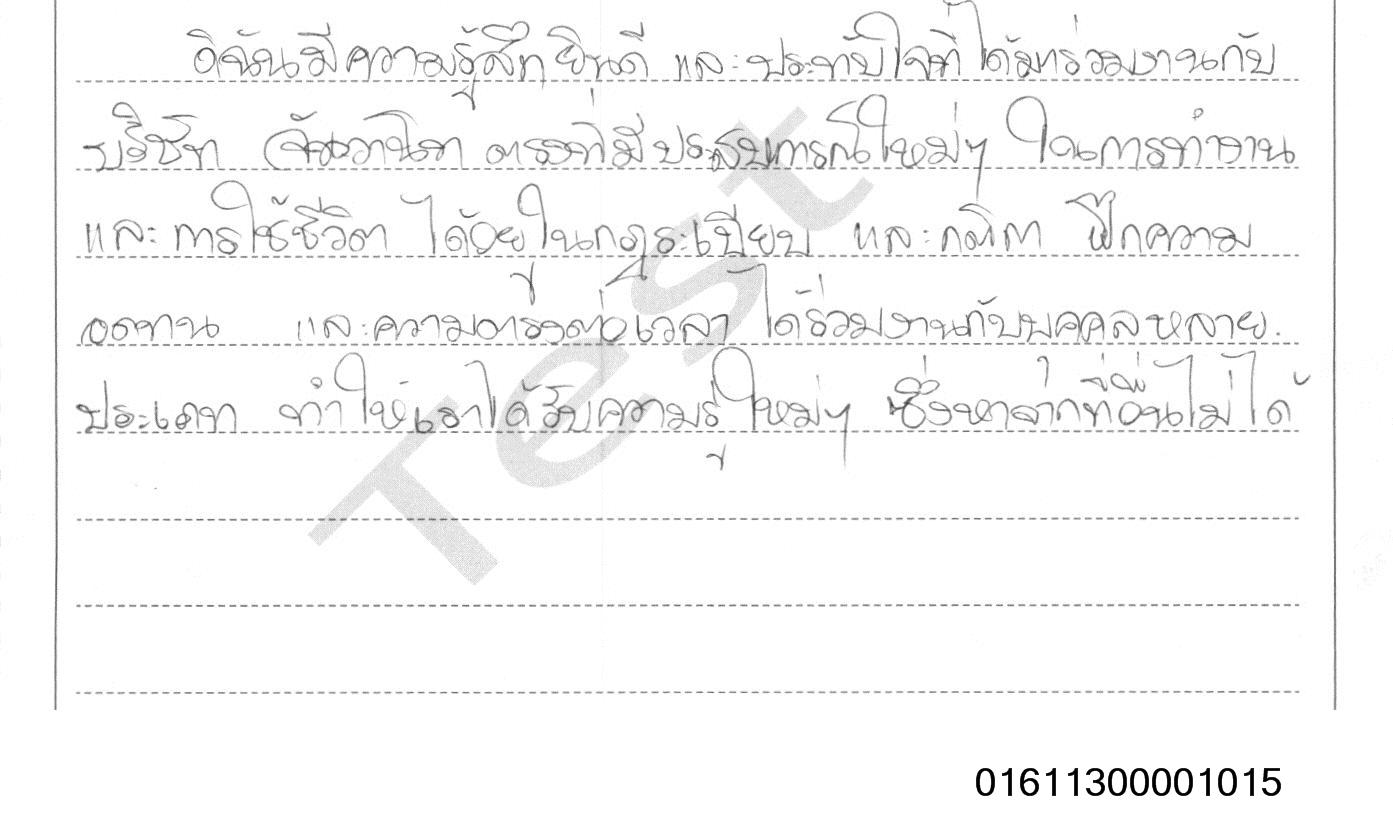 ดิฉันมีความรู้สึกยินดี และประทับใจที่ได้มาร่วมงานกับ
บริษัท จันวานิช ตรงที่มีประสบการณ์ใหม่ๆ ในการทำงาน
และการใช้ชีวิต ได้อยู่ในกฎระเบียบ และกติกา ฝึกความ
อดทน และความตรงต่อเวลา ได้ร่วมงานกับบุคคลหลาย
ประเภท ทำให้เราได้รับความรู้ใหม่ๆ ซึ่งหาจากที่อื่นไม่ได้
Test
01611300001015